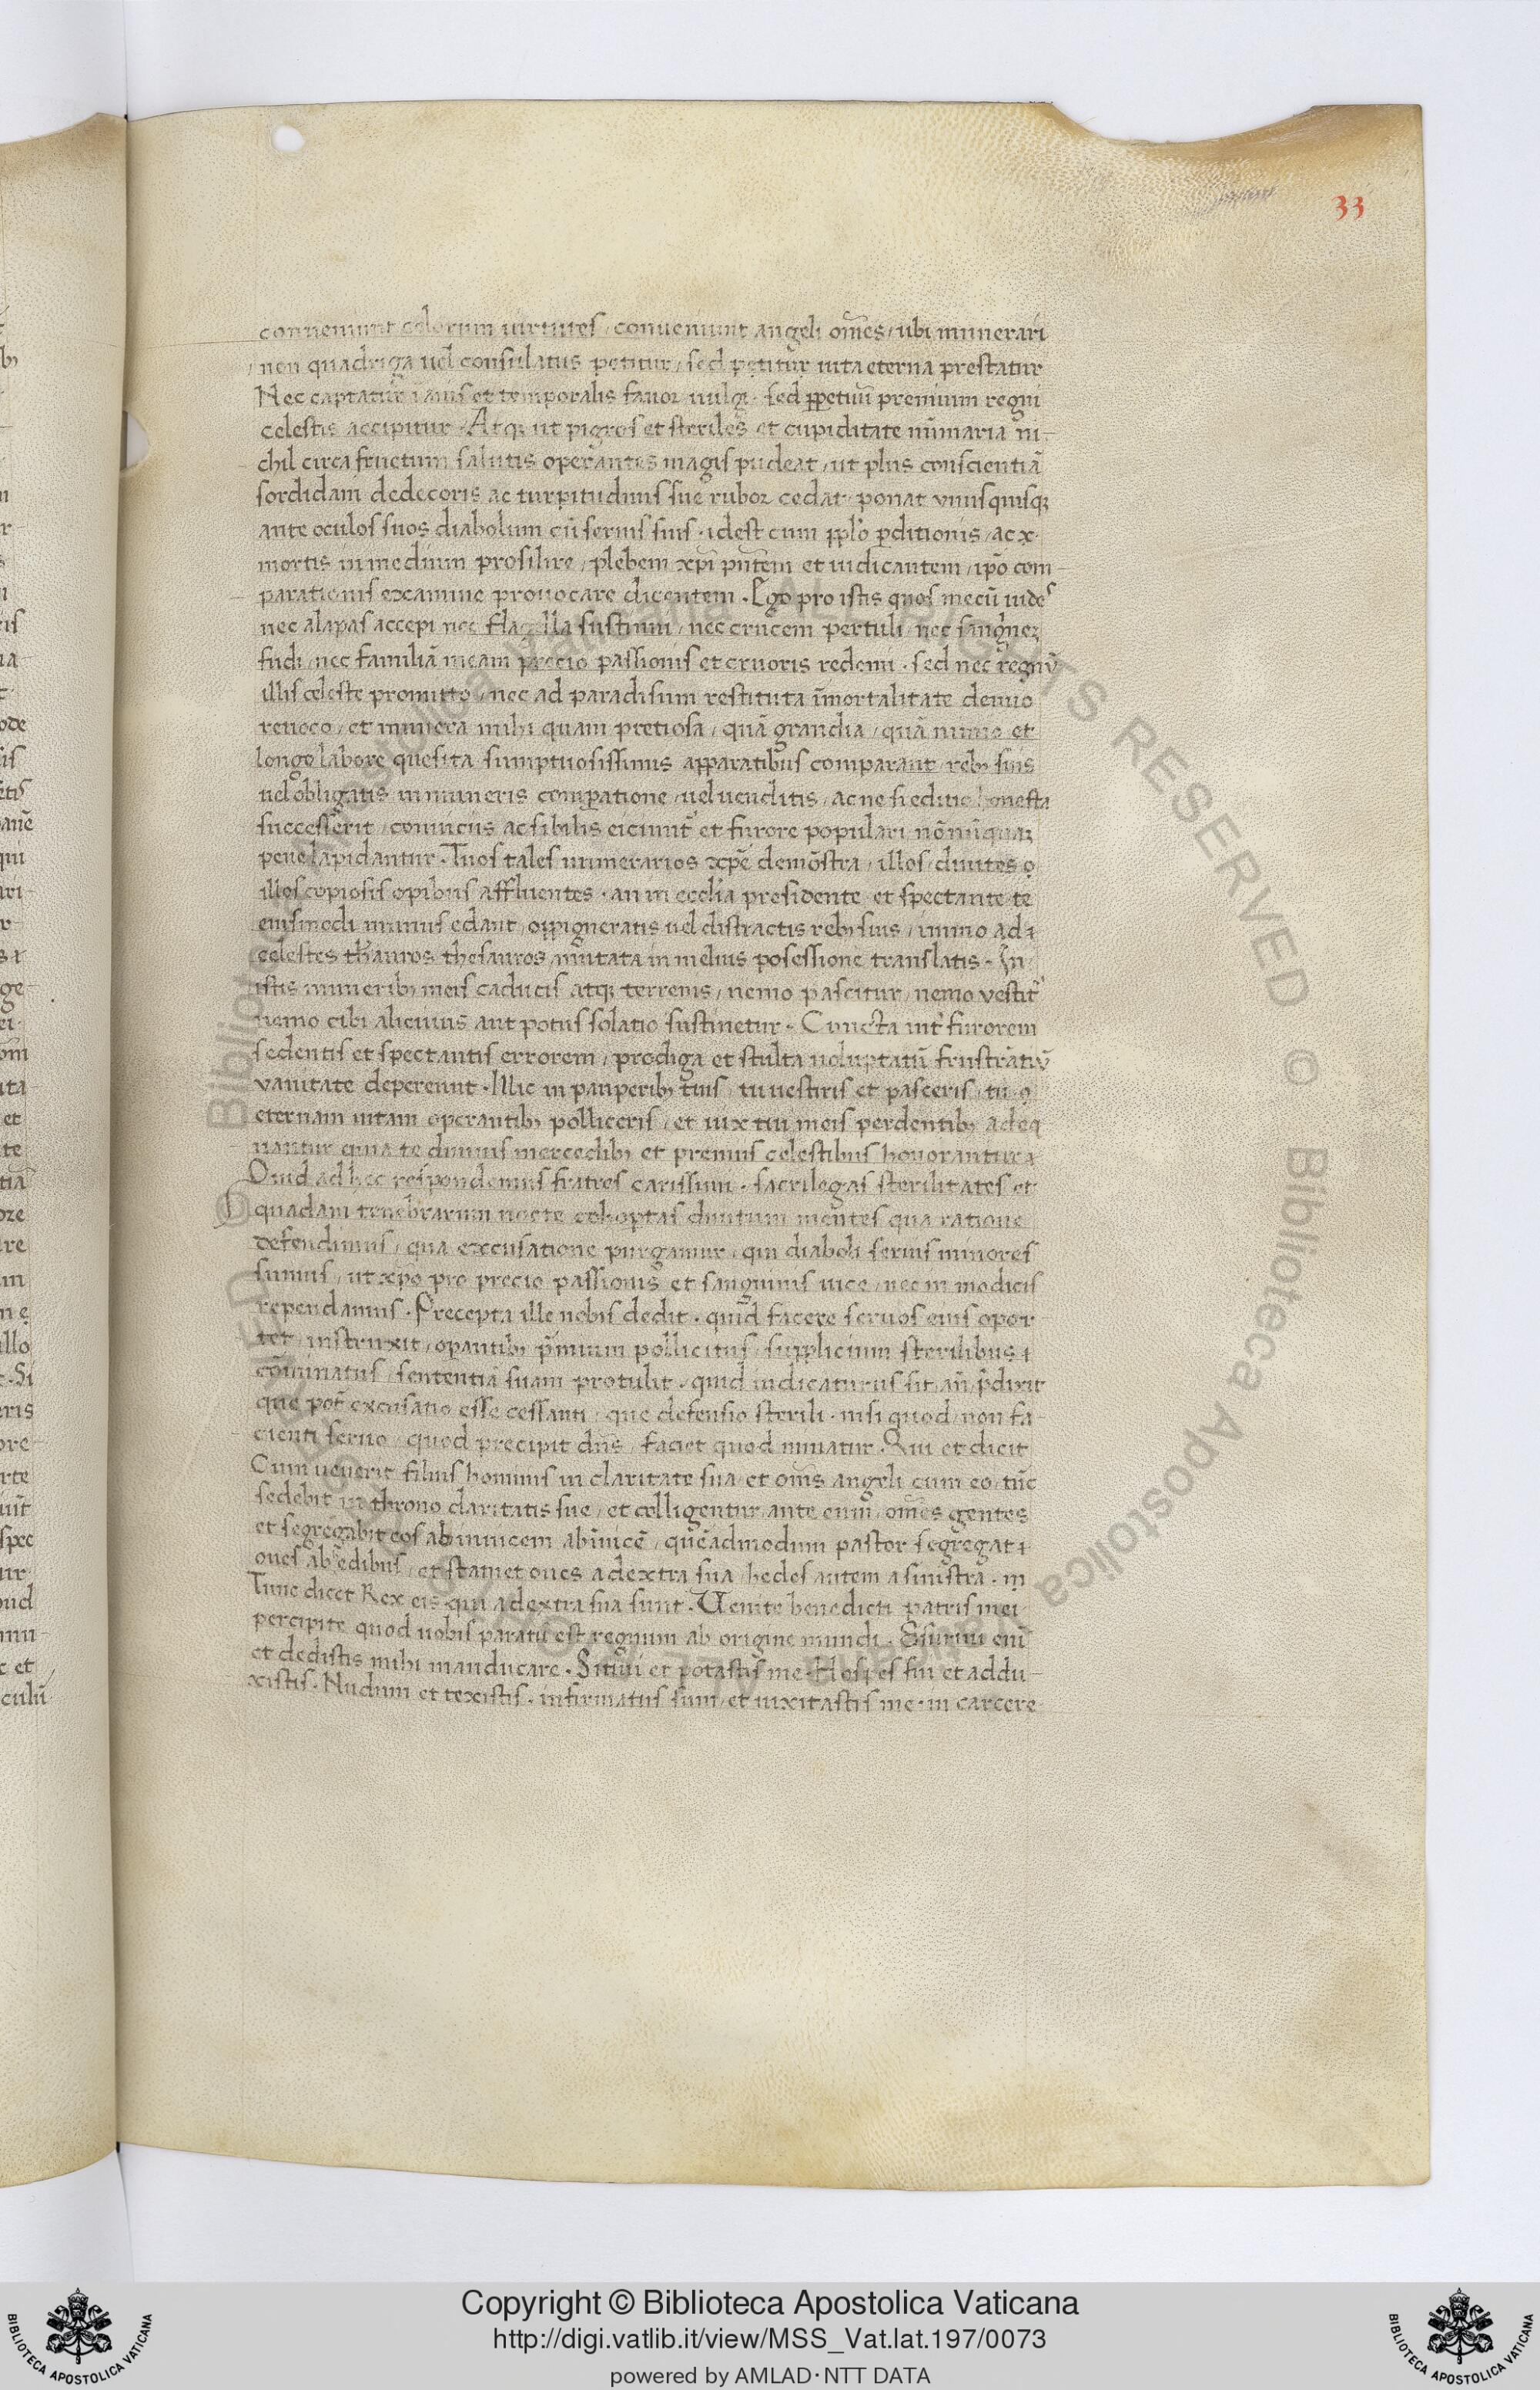 33
conueniunt celorum uirtutes / conueniunt angeli om̅es / ubi munerari
non quadriga uel consulatus petitur / sed petitur uita eterna prestatur
Nec captatur et temporalis fauor uulgi · sed ꝑpetuū premium regni
celestis accipitur · Atqꝫ ut pigros et steriles et cupiditate nūmaria ni-
chil circa fructum salutis operantes magis pudeat / ut plus conscientiā
sordidam dedecoris ac turpitudinis sue rubor cedat · ponat vnusquisqꝫ
ante oculos suos diabolum cū seruis suis · idest cum pplo ꝑditionis / ac
mortis in medium prosilire / plebem xp̅i pn̅tem et iudicantem / ip̅o com-
parationis examine prouocare dicentem · Ego pro istis quos mecū uides
nec alapas accepi nec flagella sustinui / nec crucem pertuli / nec sanguineꝫ
fudi / nec familiā meam precio passionis et cruoris redemi · sed nec regnū
illis celeste promitto / nec ad paradisum restituta īmortalitate denuo
reuoco / et munera mihi quam pretiosa / quā grandia / quā nimio et
longo labore quesita sumptuosissimis apparatibus comparant / rebꝫ suis
uel obligatis in muneris comꝑatione / uel uenditis / ac ne si editio honesta
successerit / conuiciis ac sibilis eiciunt᷑ et furore populari nōnūquaꝫ
pene lapidantur · Tuos tales munerarios xp̅e demōstra / illos diuites
illos copiosis opibus affluentes · an in ecclia presidente et spectante te
eiusmodi munus edant oppigneratis uel distractis rebꝫ suis / immo ad
celestes th̅auros thesauros mutata in melius posessione translatis · In
istis muneribꝫ meis caducis atqꝫ terrenis / nemo pascitur / nemo vestit᷑
nemo cibi alicuius aut potus solatio sustinetur · Cuncta int᷑ furorem
sedentis et spectantis errorem / prodiga et stulta uoluptatū frustratiū
vanitate depereunt · Illic in pauperibꝫ tuis / tu uestiris et pasceris / tu
eternam uitam operantibꝫ polliceris / et uix tui meis perdentibꝫ adeq
uantur qui a te diuinis mercedibꝫ et premiis celestibus honorantur
Quid ad hec respondemus fratres carissimi · sacrilegas sterilitates et
quadam tenebrarum nocte cohoptas diuitum mentes qua ratione
defendimus / qua excusatione purgamur / qui diaboli seruis minores
sumus / ut xp̅o pro precio passionis et sanguinis uice / nec in modicis
rependamus · Precepta ille nobis dedit · quid facere seruos eius opor
tet instruxit / oꝑantibꝫ p̅mium pollicitus / supplicium sterilibus
cōminatus / sententiā suam protulit · quid iudicaturus sit an̅ p̅dixit
que pot̅ excusatio esse cessanti / que defensio sterili · nisi quod non fa-
cienti seruo / quod precipit dn̅s / faciet quod minatur · Qui et dicit
Cum uenerit filius hominis in claritate sua et om̅s angeli cum eo / tūc
sedebit in throno claritatis sue / et colligentur ante eum om̅es gentes
et segregabit eos ab inuicem ab īuicē / quēadmodum pastor segregat
oues ab edibus / et statuet oues a dextra sua / hedes autem a sinistra ·
Tunc dicet Rex eis qui a dextra sua sunt · Uenite benedicti patris mei
percipite quod uobis paratū est regnum ab origine mundi · Esuriui enī
et dedistis mihi manducare · Sitiui et potastis me · Hospes fui et addu-
xistis · Nudum et texistis · infirmatus sum / et uixitastis me · in carcere
Copyright © Biblioteca Apostolica Vaticana
http://digi.vatlib.it/view/MSS_Vat.lat.197/0073
powered by AMLAD·NTT DATA